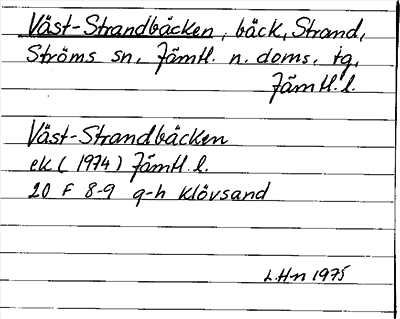 Väst-Strandbäcken, bäck, Strand,
Ströms sn, Jämtl. n. doms. tg,
Jämtl. l.
Väst-Strandbäcken
ek (1974) Jämtl. l.
20 F 8-9 g-h Klövsand
L.H-n 1975